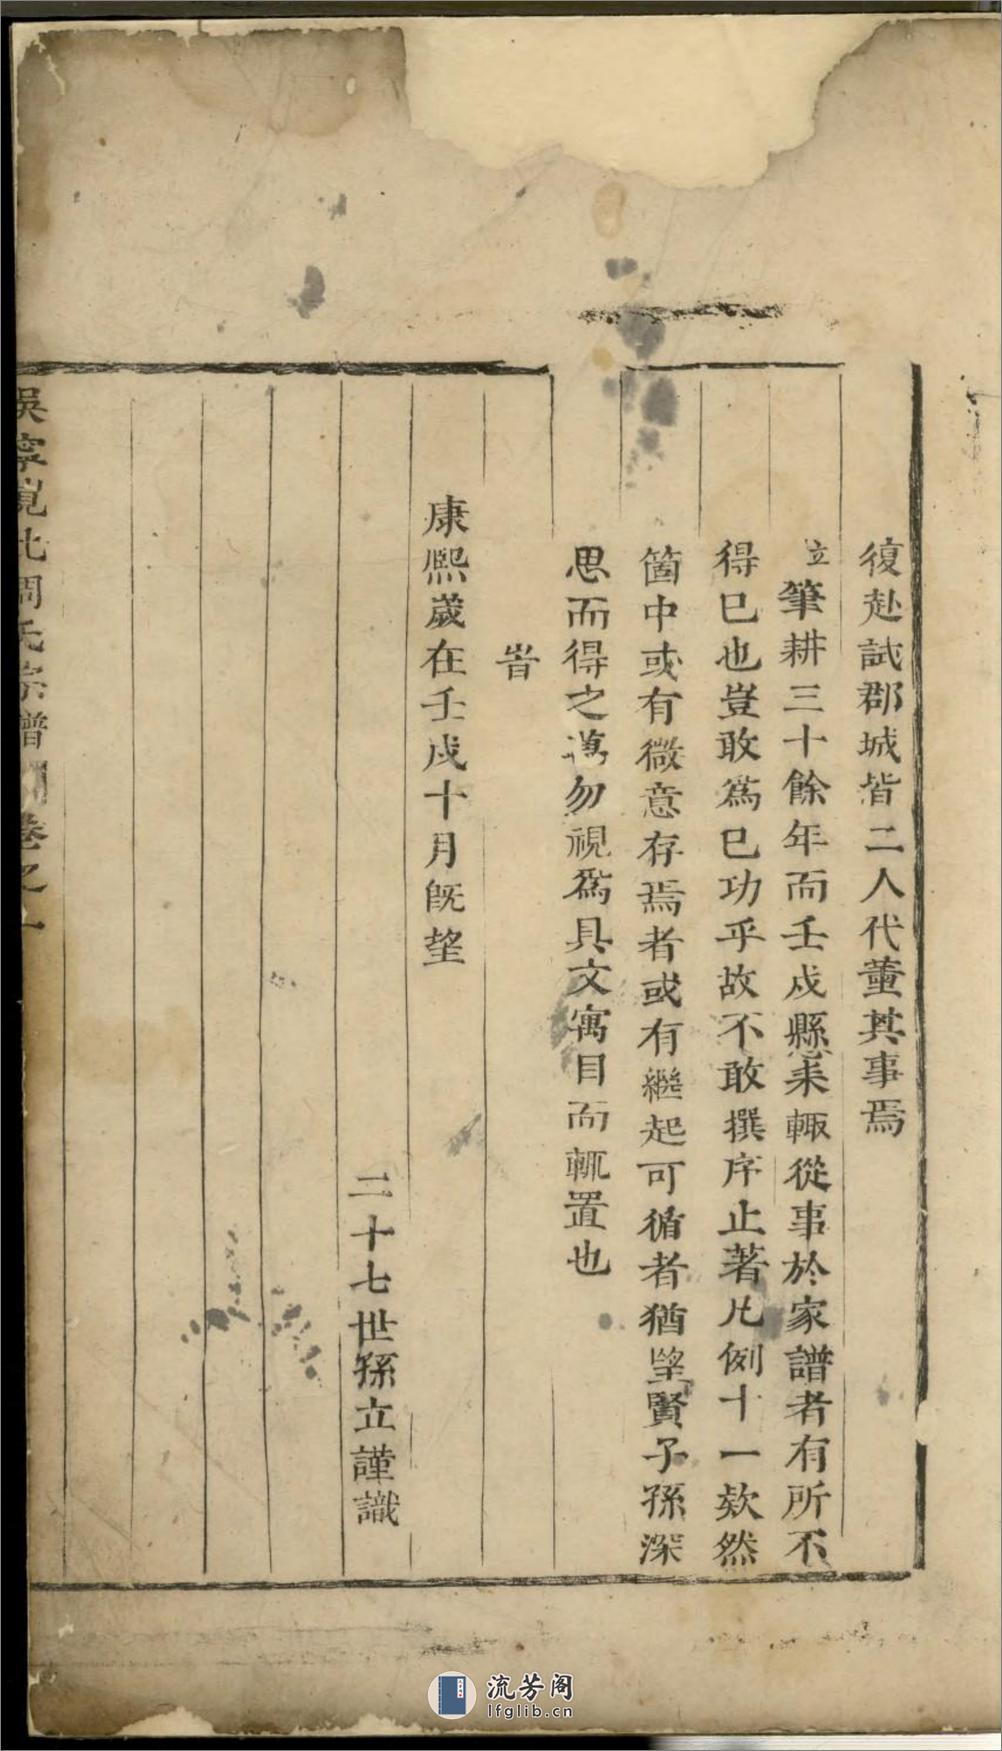 復赴試郡城皆二人代董其事焉
立筆耕三十餘年而壬戌懸耒輙從事於家譜者有所不
得巳也豈敢爲巳功乎故不敢撰序止著凢例十一欵然
箇中或有微意存焉者或有繼起可循者猶望賢子孫深
思而得之萬勿視爲具文寓目而輒置也
旹
康熙歲在壬戌十月旣望
二十七世孫立謹識
吳寧峴北周氏宗譜 卷之一
流芳阁
lfglib.cn